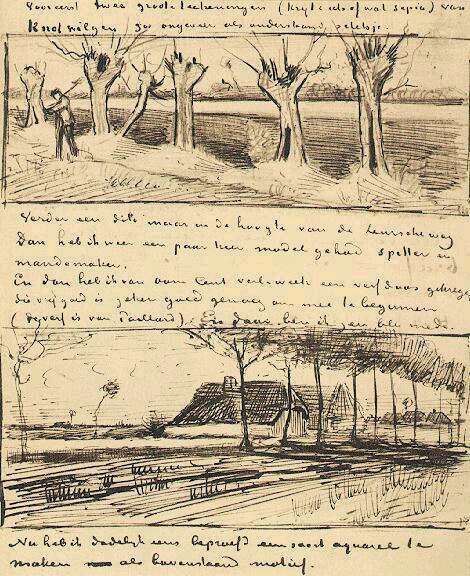 Vooreerst twee groote teekeningen (krijt & iets of wat sepia) van
Knotwilgen, zoo ongeveer als onderstaand schetsje.
Verder een dito maar in de hoogte van de Leursche weg
Dan heb ik weer een paar keer model gehad spitter en
mandemaker.
En dan heb ik van oom Cent verl. week een verfdoos gekregen
die vrij goed is zeker goed genoeg om mee te beginnen
(de verf is van Paillard). En daar ben ik zeer blij mede.
Nu heb ik dadelijk eens beproefd een soort aquarel te
maken als bovenstaand motief.